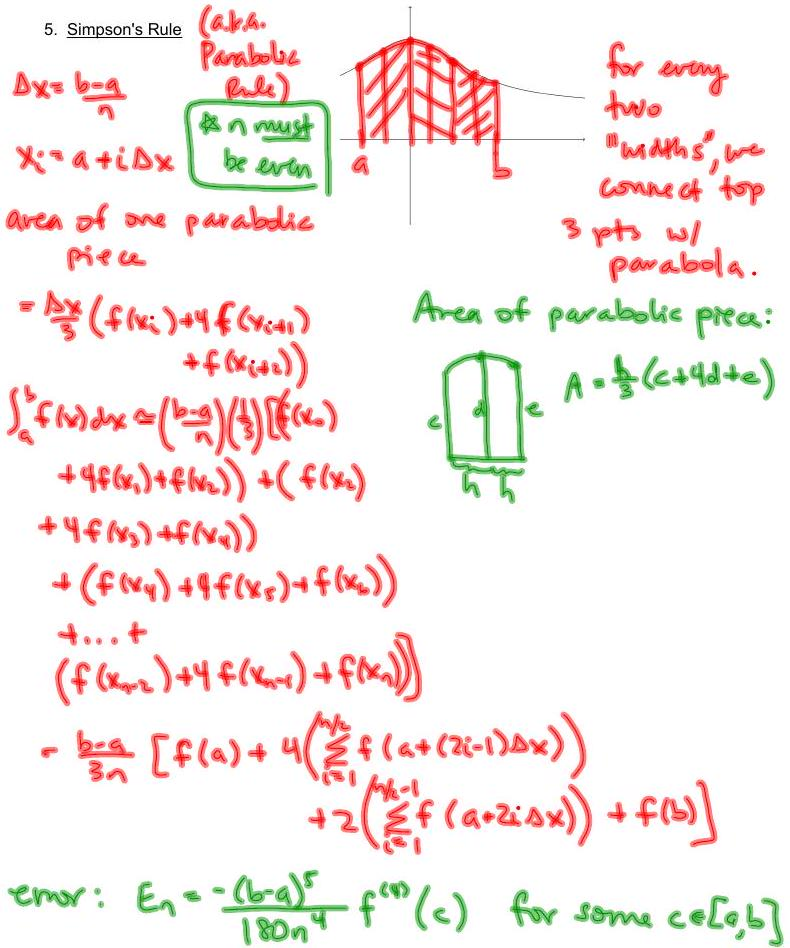 5. Simpson's Rule (a.k.a. Parabolic Rule)
Δx = b-a/n
* n must be even
x_i = a + iΔx
a
b
for every two "widths", we connect top 3 pts w/ parabola.
area of one parabolic piece
= Δx/3 (f(x_i)+4f(x_{i+1})
+f(x_{i+2}))
Area of parabolic piece:
c d e
h h
A = h/3 (c+4d+e)
∫_a^b f(x)dx ≈ (b-a/n)(1/3)[(f(x_0)
+4f(x_1)+f(x_2)) + (f(x_2)
+4f(x_3)+f(x_4))
+(f(x_4)+4f(x_5)+f(x_6))
+...+
(f(x_{n-2})+4f(x_{n-1})+f(x_n))]
= b-a/3n [f(a) + 4(∑_{i=1}^{n/2} f(a+(2i-1)Δx))
+2(∑_{i=1}^{n/2-1} f(a+2iΔx)) + f(b)]
error: E_n = -(b-a)^5/180n^4 f^{(4)}(c) for some c∈[a,b]